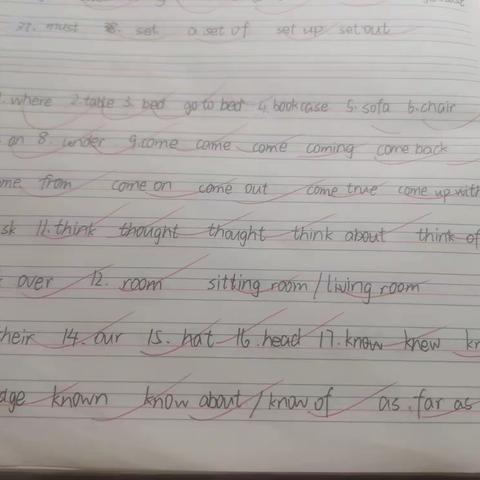 27. must 28. set a set of set up set out
1. where 2. table 3. bed go to bed 4. bookcase 5. sofa 6. chair
on 8. under 9. come came come coming come back
from come on come out come true come up with
11. think thought thought think about think of
over 12. room sitting room / living room
their 14. our 15. hat 16. head 17. know knew
known know about / know of as far as